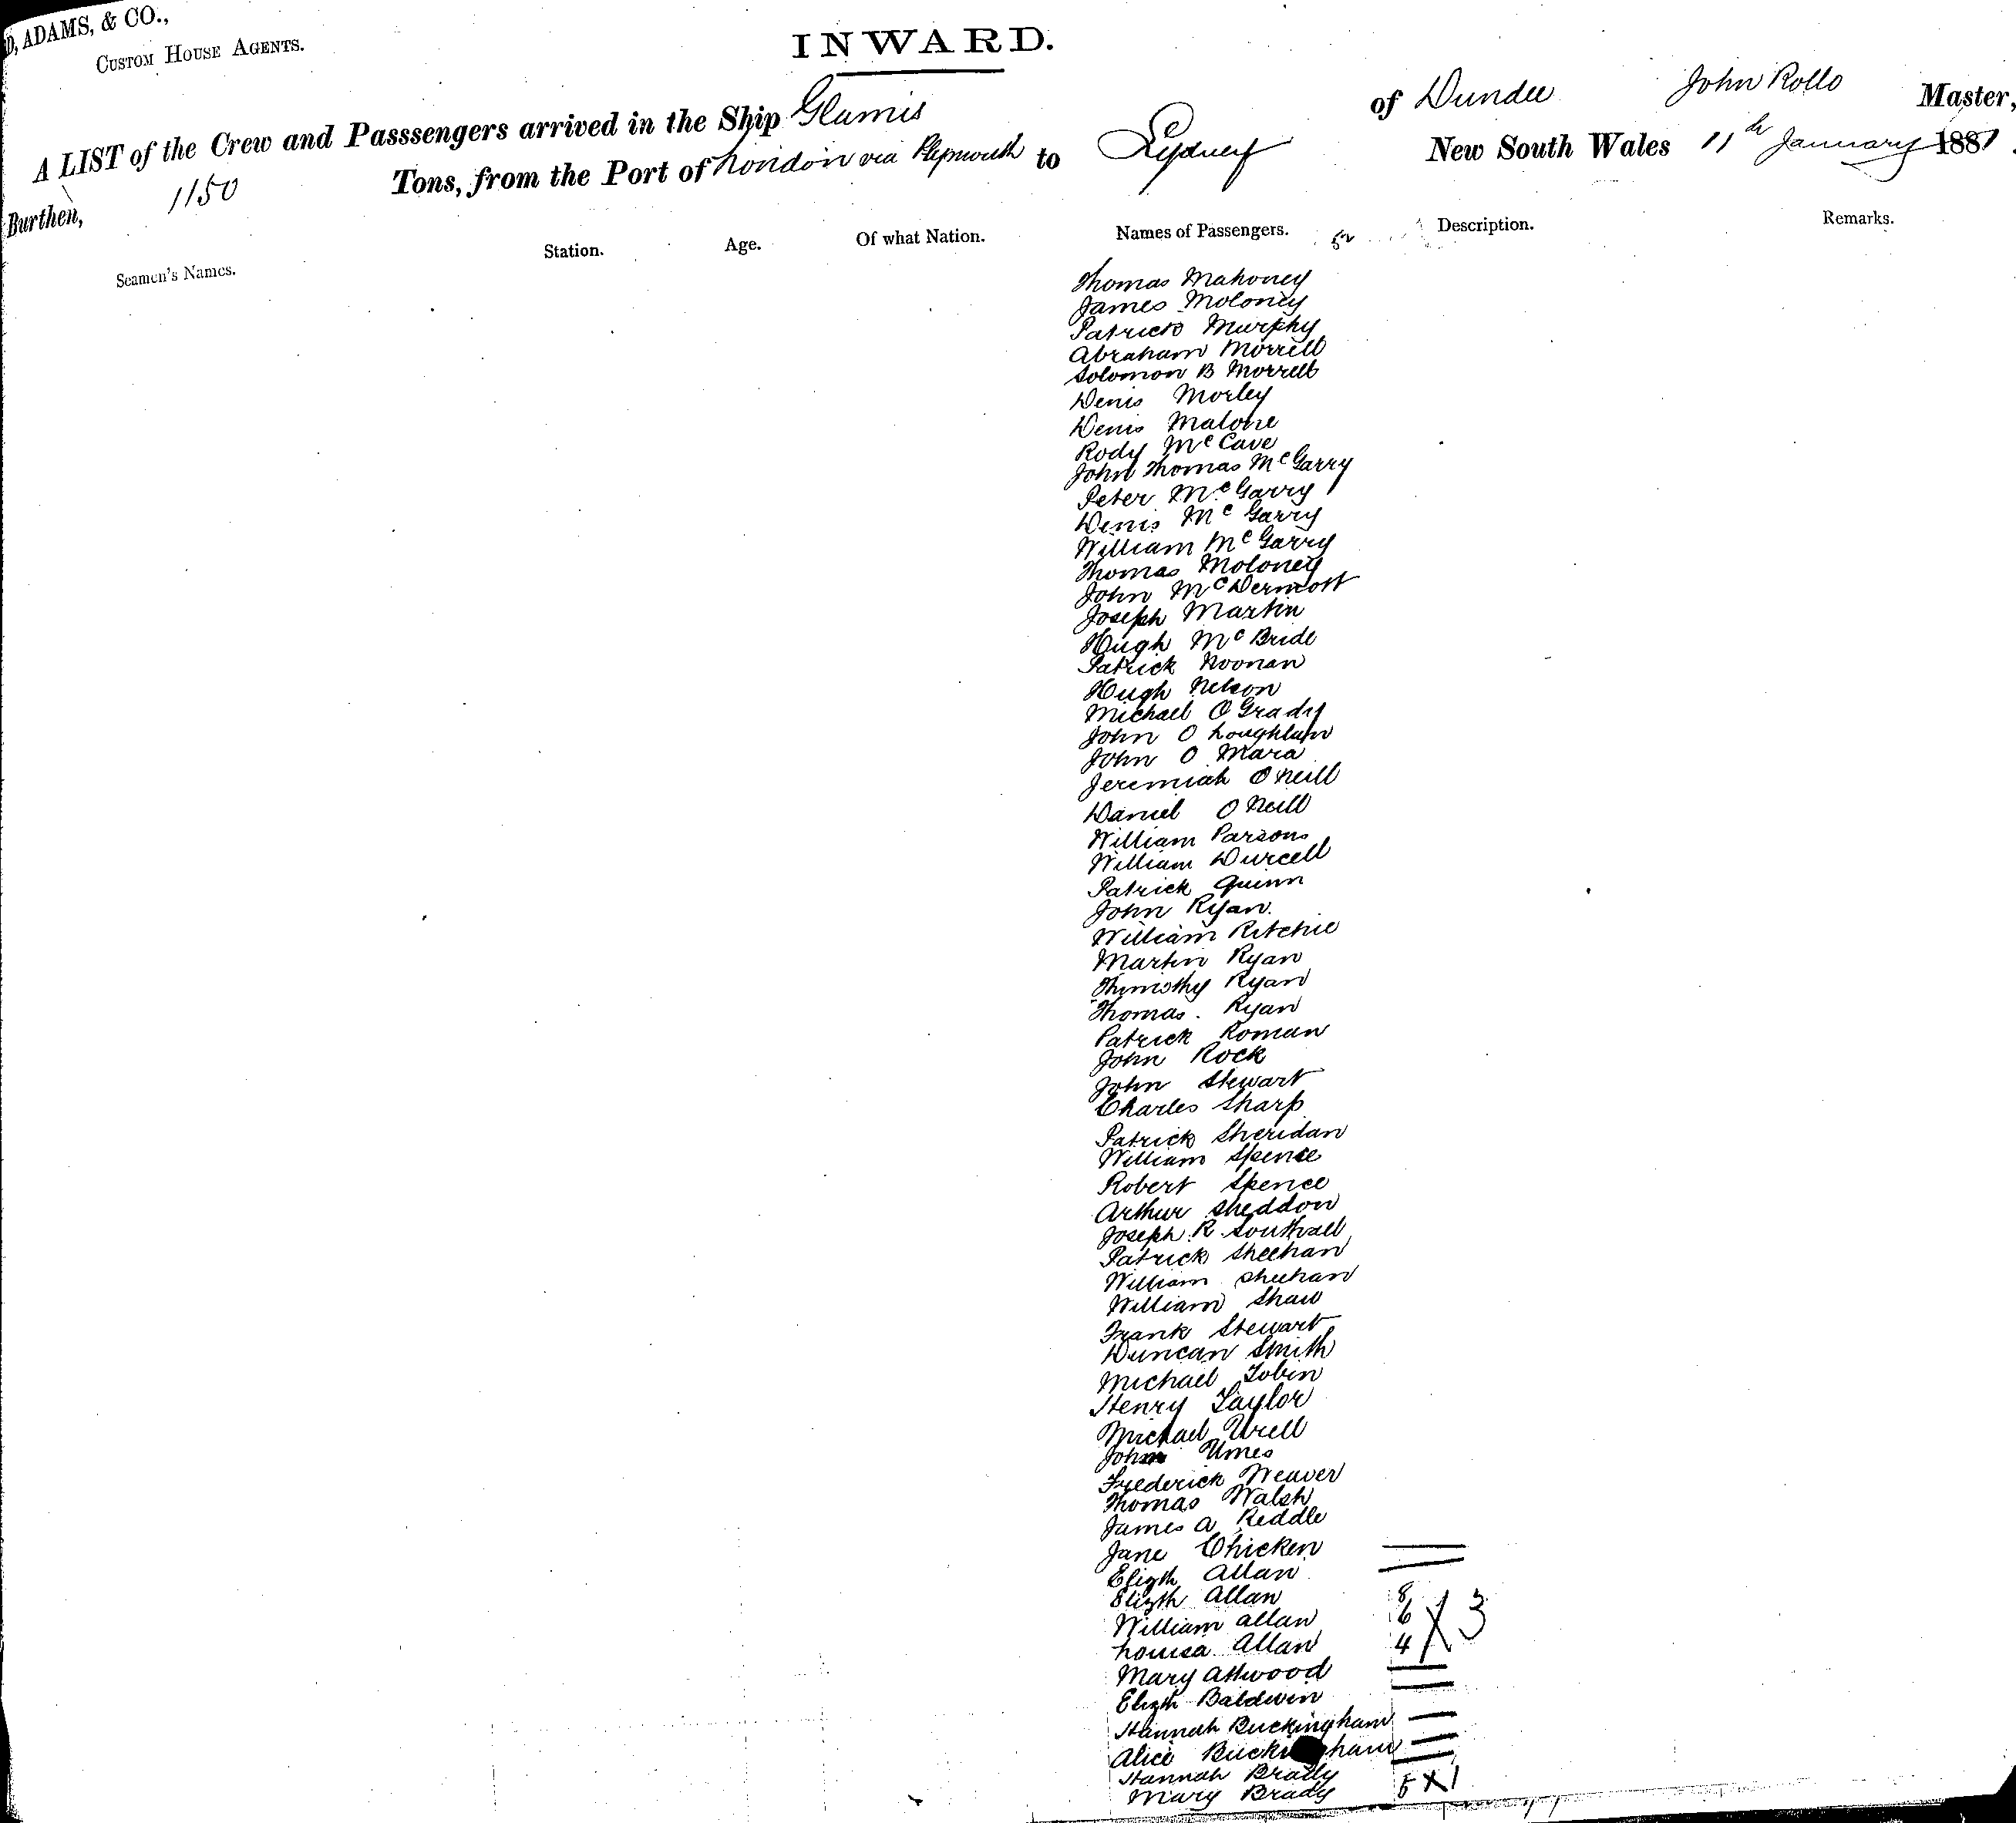 D, ADAMS, & CO.,
CUSTOM HOUSE AGENTS.
INWARD.
A LIST of the Crew and Passsengers arrived in the Ship Glamis of Dundee John Rollo Master,
Burthen, 1150 Tons, from the Port of London via Plymouth to Sydney New South Wales 11th January 1881.
Seamen's Names. Station. Age. Of what Nation. Names of Passengers. 52 Description. Remarks.
Thomas Mahoney
James Moloney
Patrick Murphy
Abraham Morrell
Solomon B Morrell
Denis Morley
Denis Malone
Rody McCave
John Thomas McGarry
Peter McGarry
Denis McGarry
William McGarry
Thomas Moloney
John McDermott
Joseph Martin
Hugh McBride
Patrick Noonan
Hugh Nelson
Michael O Grady
John O Loughlan
John O Mara
Jeremiah O Neill
Daniel O Neill
William Parsons
William Durcell
Patrick Quinn
John Ryan.
William Ritchie
Martin Ryan
Thimothy Ryan
Thomas. Ryan
Patrick Roman
John Rock
John Stewart
Charles Sharp
Patrick Sheridan
William Spence
Robert Spence
Arthur Sheddon
Joseph R Southall
Patrick Sheehan
William Sheehan
William Shaw
Frank Stewart
Duncan Smith
Michael Tobin
Henry Taylor
Michael Urell
John Umes
Frederick Weaver
Thomas Walsh
James A Reddle
Jane Chicken
Elizth Allan
Elizth Allan 8
William Allan 6 X 3
Louisa Allan 4
Mary Attwood
Elizth Baldwin
Hannah Buckingham
Alice Buckingham
Hannah Brady
Mary Brady 5 X 1